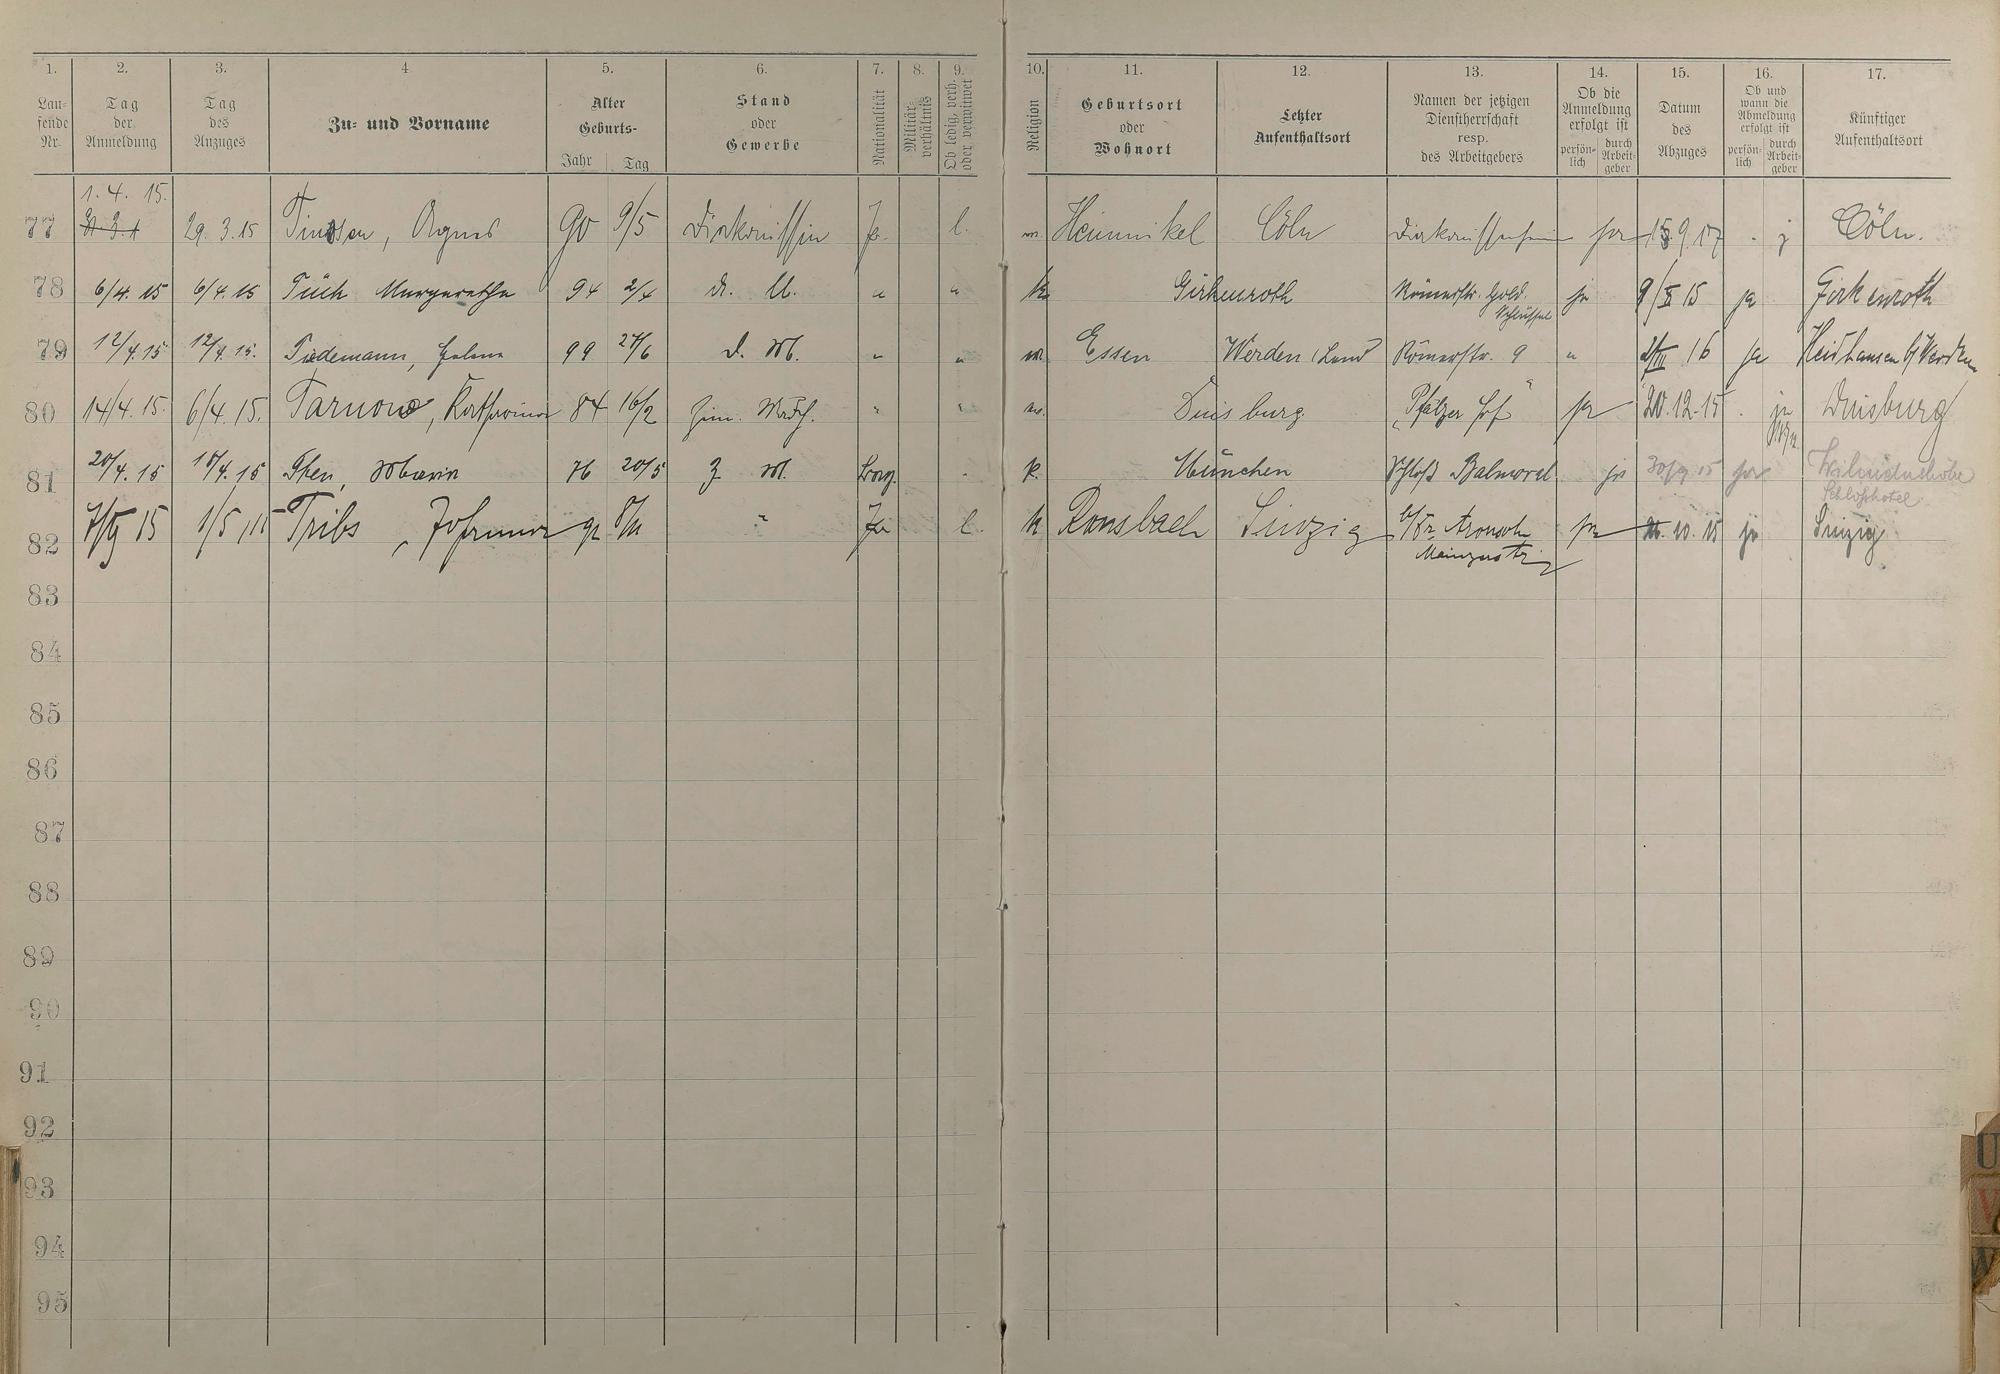 1. 2. 3. 4 5. 6. 7. 8. 9. 10. 11. 12. 13. 14. 15. 16. 17.
Lau-
fende
Nr.
Tag
der
Anmeldung
Tag
des
Anzuges
Zu- und Vorname
Alter
Geburts-
Jahr Tag
Stand
oder
Gewerbe
Nationalität
Militär-
verhältnis
Ob ledig, verh.
oder verwitwet
Religion
Geburtsort
oder
Wohnort
Letzter
Aufenthaltsort
Namen der jetzigen
Dienstherrschaft
resp.
des Arbeitgebers
Ob die
Anmeldung
erfolgt ist
persön-
lich
durch
Arbeit-
geber
Datum
des
Abzuges
Ob und
wann die
Abmeldung
erfolgt ist
persön-
lich
durch
Arbeit-
geber
Künftiger
Aufenthaltsort
1. 4. 15.
77 29. 3. 15 Agnes 90 9/5 Diakonissin l. Cöln ja 9. 17 Cöln.
78 6/4. 15 6/4. 15 Tüch Margarethe 94 2/4 d. M. " " k. Girkenroth Römerstr. Gold.
Schlüssel ja 9/X 15 ja Girkenroth
79 12/4. 15 12/4. 15. Tiedemann, Helene 99 27/6 d. M. " " Essen Werden (Land Römerstr. 9 " 16 ja Heidhausen b/ Werden
80 14/4. 15. 6/4. 15. Tarnow, Katharina 84 16/2 Zim. Mdch. " " Duisburg. "Pfälzer Hof" ja 20. 12. 15 ja Duisburg
81 20/4. 15 18/4. 15 Maria 76 20/5 Z. M. k. München Schloß Balmoral ja 30/9 15 ja
Schloßhotel
82 15 1/5. 15 Tribs, Johanna " l. k Ransbach Sinzig Aronsohn
Mainzerstr. ja 10. 15 ja Sinzig
83
84
85
86
87
88
89
90
91
92
93
94
95
U
V
W